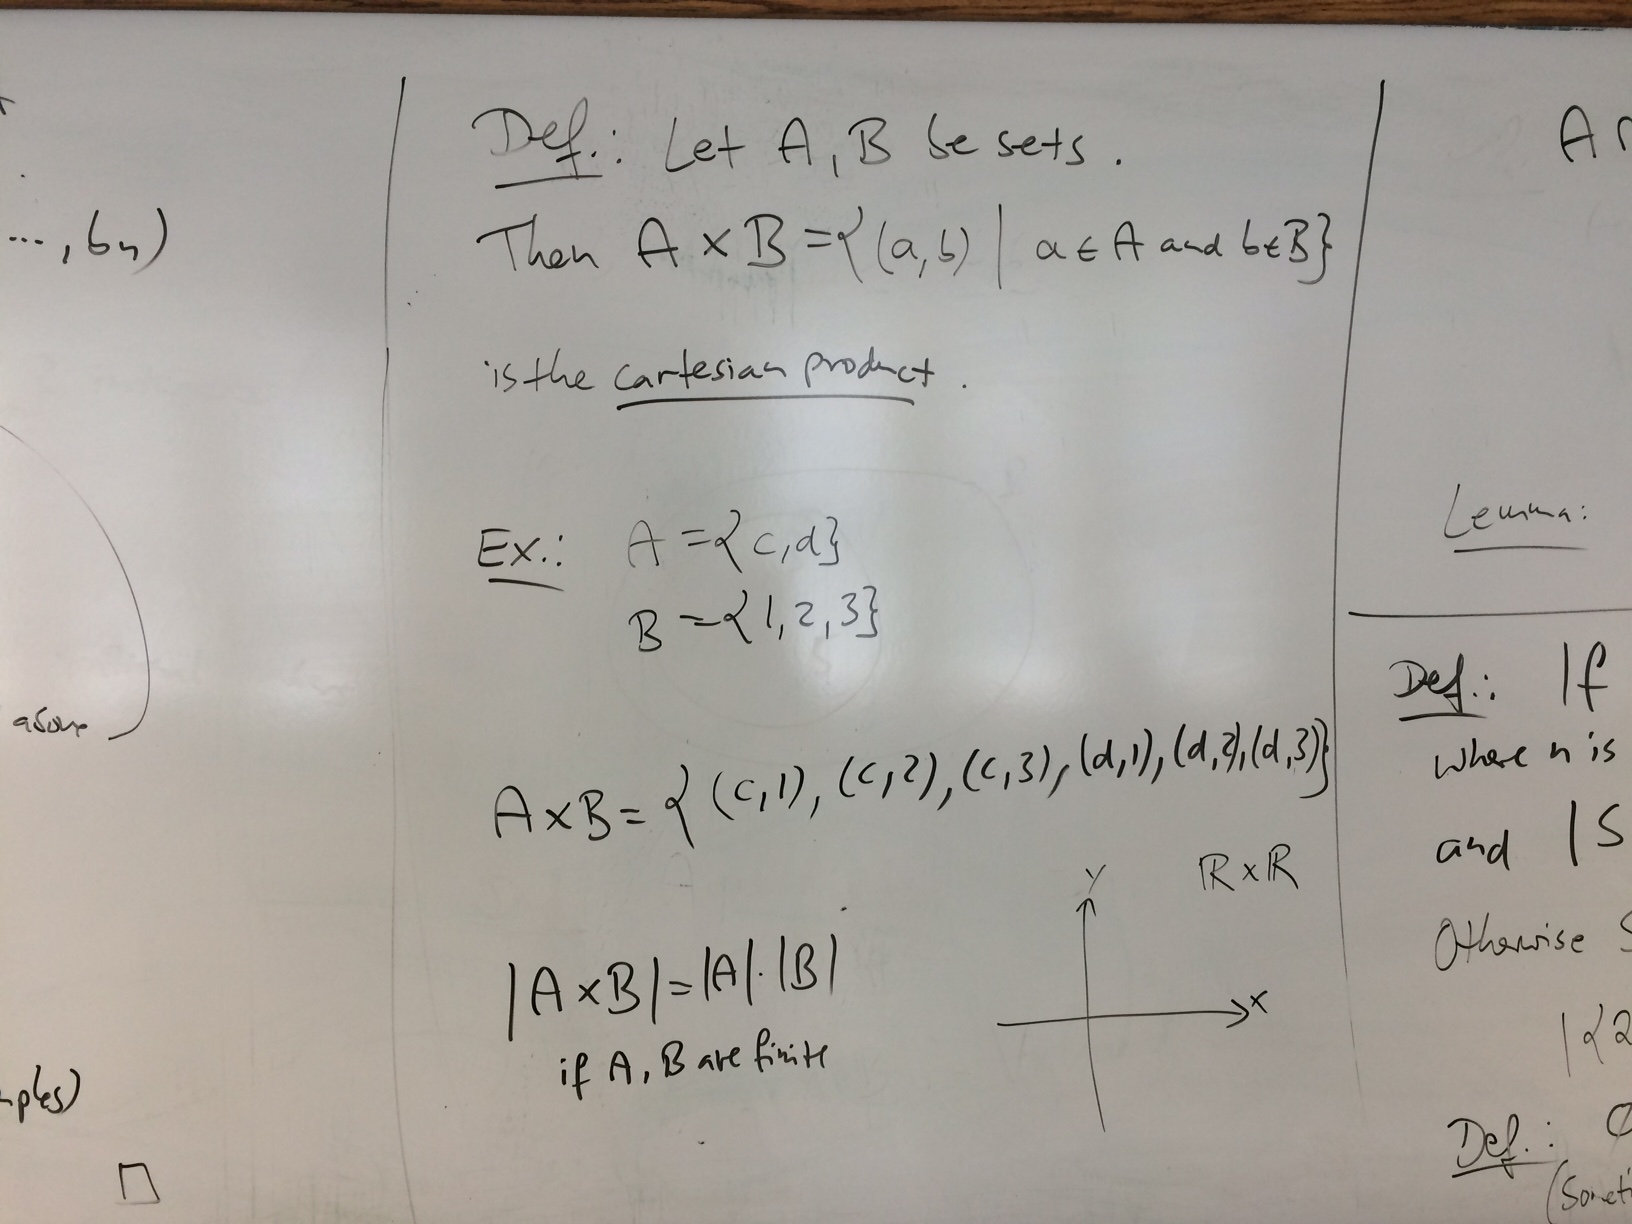 ..., bn)
above
mples)
Def.: Let A, B be sets.
Then A × B = {(a,b) | a ∈ A and b ∈ B}
is the cartesian product.
Ex.: A = {c,d}
B = {1,2,3}
A×B = {(c,1), (c,2), (c,3), (d,1), (d,2), (d,3)}
|A×B| = |A|·|B|
if A, B are finite
ℝ×ℝ
y
x
A
Lemma:
Def.: If
where n is
and |S
Otherwise S
|{2
Def.: ∅
(Someti